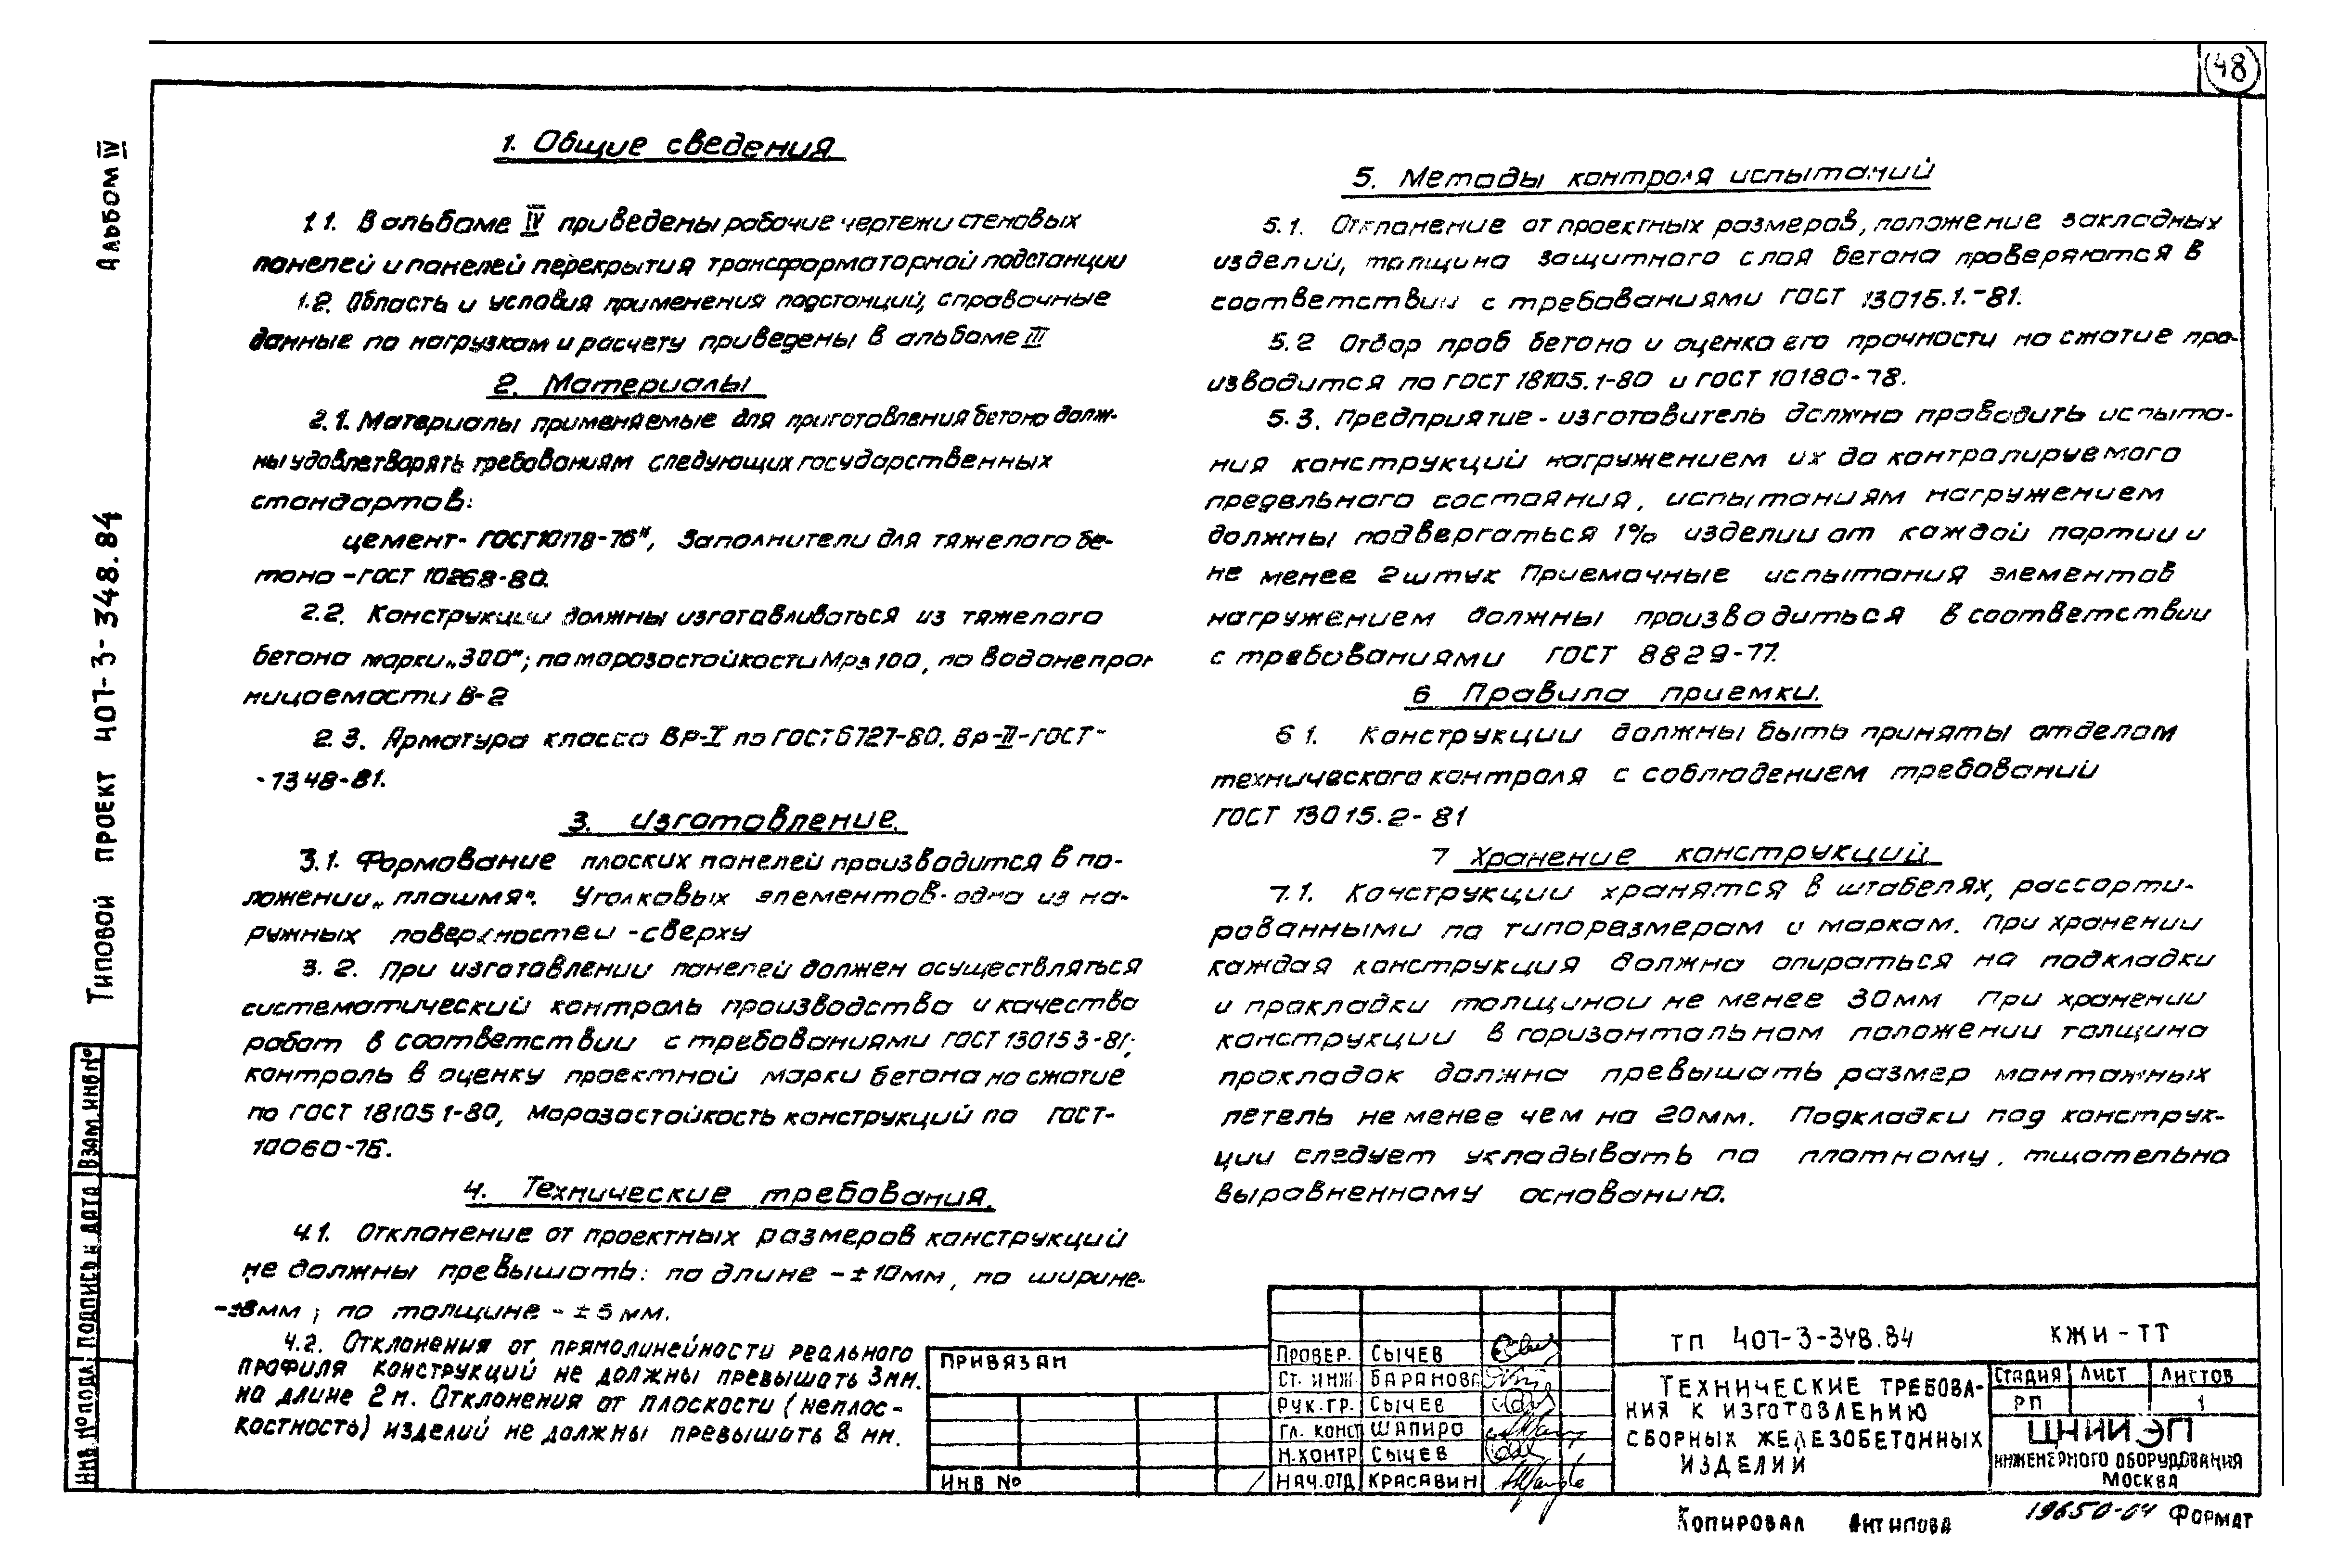 48
Альбом IV
Типовой проект 407-3-348.84
1. Общие сведения
1.1. В альбоме IV приведены рабочие чертежи стеновых
панелей и панелей перекрытия трансформаторной подстанции
1.2. Область и условия применения подстанций, справочные
данные по нагрузкам и расчету приведены в альбоме III
2. Материалы
2.1. Материалы применяемые для приготовления бетона долж-
ны удовлетворять требованиям следующих государственных
стандартов:
цемент- Заполнители для тяжелого бе-
тона -ГОСТ 10268-80.
2.2. Конструкции должны изготавливаться из тяжелого
бетона марки „300"; по морозостойкости Мрз 100, по водонепрон
ницаемости В-2
2.3. Арматура класса Вр-I по ГОСТ 6727-80. Вр-II-ГОСТ-
-7348-81.
3. Изготовление.
3.1. Формование плоских панелей производится в по-
ложении „плашмя". Уголковых элементов-одна из на-
ружных поверхностей -сверху
3.2. При изготовлении панелей должен осуществляться
систематический контроль производства и качества
работ в соответствии с требованиями ГОСТ 13015 3-81;
контроль в оценку проектной марки бетона на сжатие
по ГОСТ 18105 1-80, морозостойкость конструкций по ГОСТ-
10060-76.
4. Технические требования.
4.1. Отклонение от проектных размеров конструкций
не должны превышать: по длине -±10мм, по ширине-
-±8мм; по толщине -±5мм.
4.2. Отклонения от прямолинейности реального
профиля конструкций не должны превышать 3мм.
на длине 2м. Отклонения от плоскости (неплос-
костность) изделий не должны превышать 8 мм.
5. Методы контроля испытаний
5.1. Отклонение от проектных размеров, положение закладных
изделий, толщина защитного слоя бетона проверяются в
соответствии с требованиями ГОСТ 13015.1.-81.
5.2 Отбор проб бетона и оценка его прочности на сжатие про-
изводится по ГОСТ 18105.1-80 и ГОСТ 10180-78.
5.3. Предприятие-изготовитель должно проводить испыта-
ния конструкций нагружением их до контролируемого
предельного состояния, испытаниям нагружением
должны подвергаться 1% изделии от каждой партии и
не менее 2 штук Приемочные испытания элементов
нагружением должны производиться в соответствии
с требованиями ГОСТ 8829-77.
6 Правила приемки.
6 1. Конструкции должны быть приняты отделом
технического контроля с соблюдением требований
ГОСТ 13015.2-81
7 Хранение конструкций
7.1. Конструкции хранятся в штабелях, рассорти-
рованными по типоразмерам и маркам. При хранении
каждая конструкция должна опираться на подкладки
и прокладки толщиной не менее 30мм При хранении
конструкции в горизонтальном положении толщина
прокладок должна превышать размер монтажных
петель не менее чем на 20мм. Подкладки под конструк-
ции следует укладывать по плотному, тщательно
выравненному основанию.
Инв № подл. Подпись и дата Взам. инв №
Привязан
Инв №
Провер. Сычев
Ст. инж Баранова
Рук. гр. Сычев
Гл. конст Шапиро
Н.контр Сычев
Нач.отд Красавин
ТП 407-3-348.84 КЖИ-ТТ
Технические требова-
ния к изготовлению
сборных железобетонных
изделии
Стадия Лист Листов
РП 1
ЦНИИЭП
инженерного оборудования
Москва
Копировал Антипова 19650-04 Формат